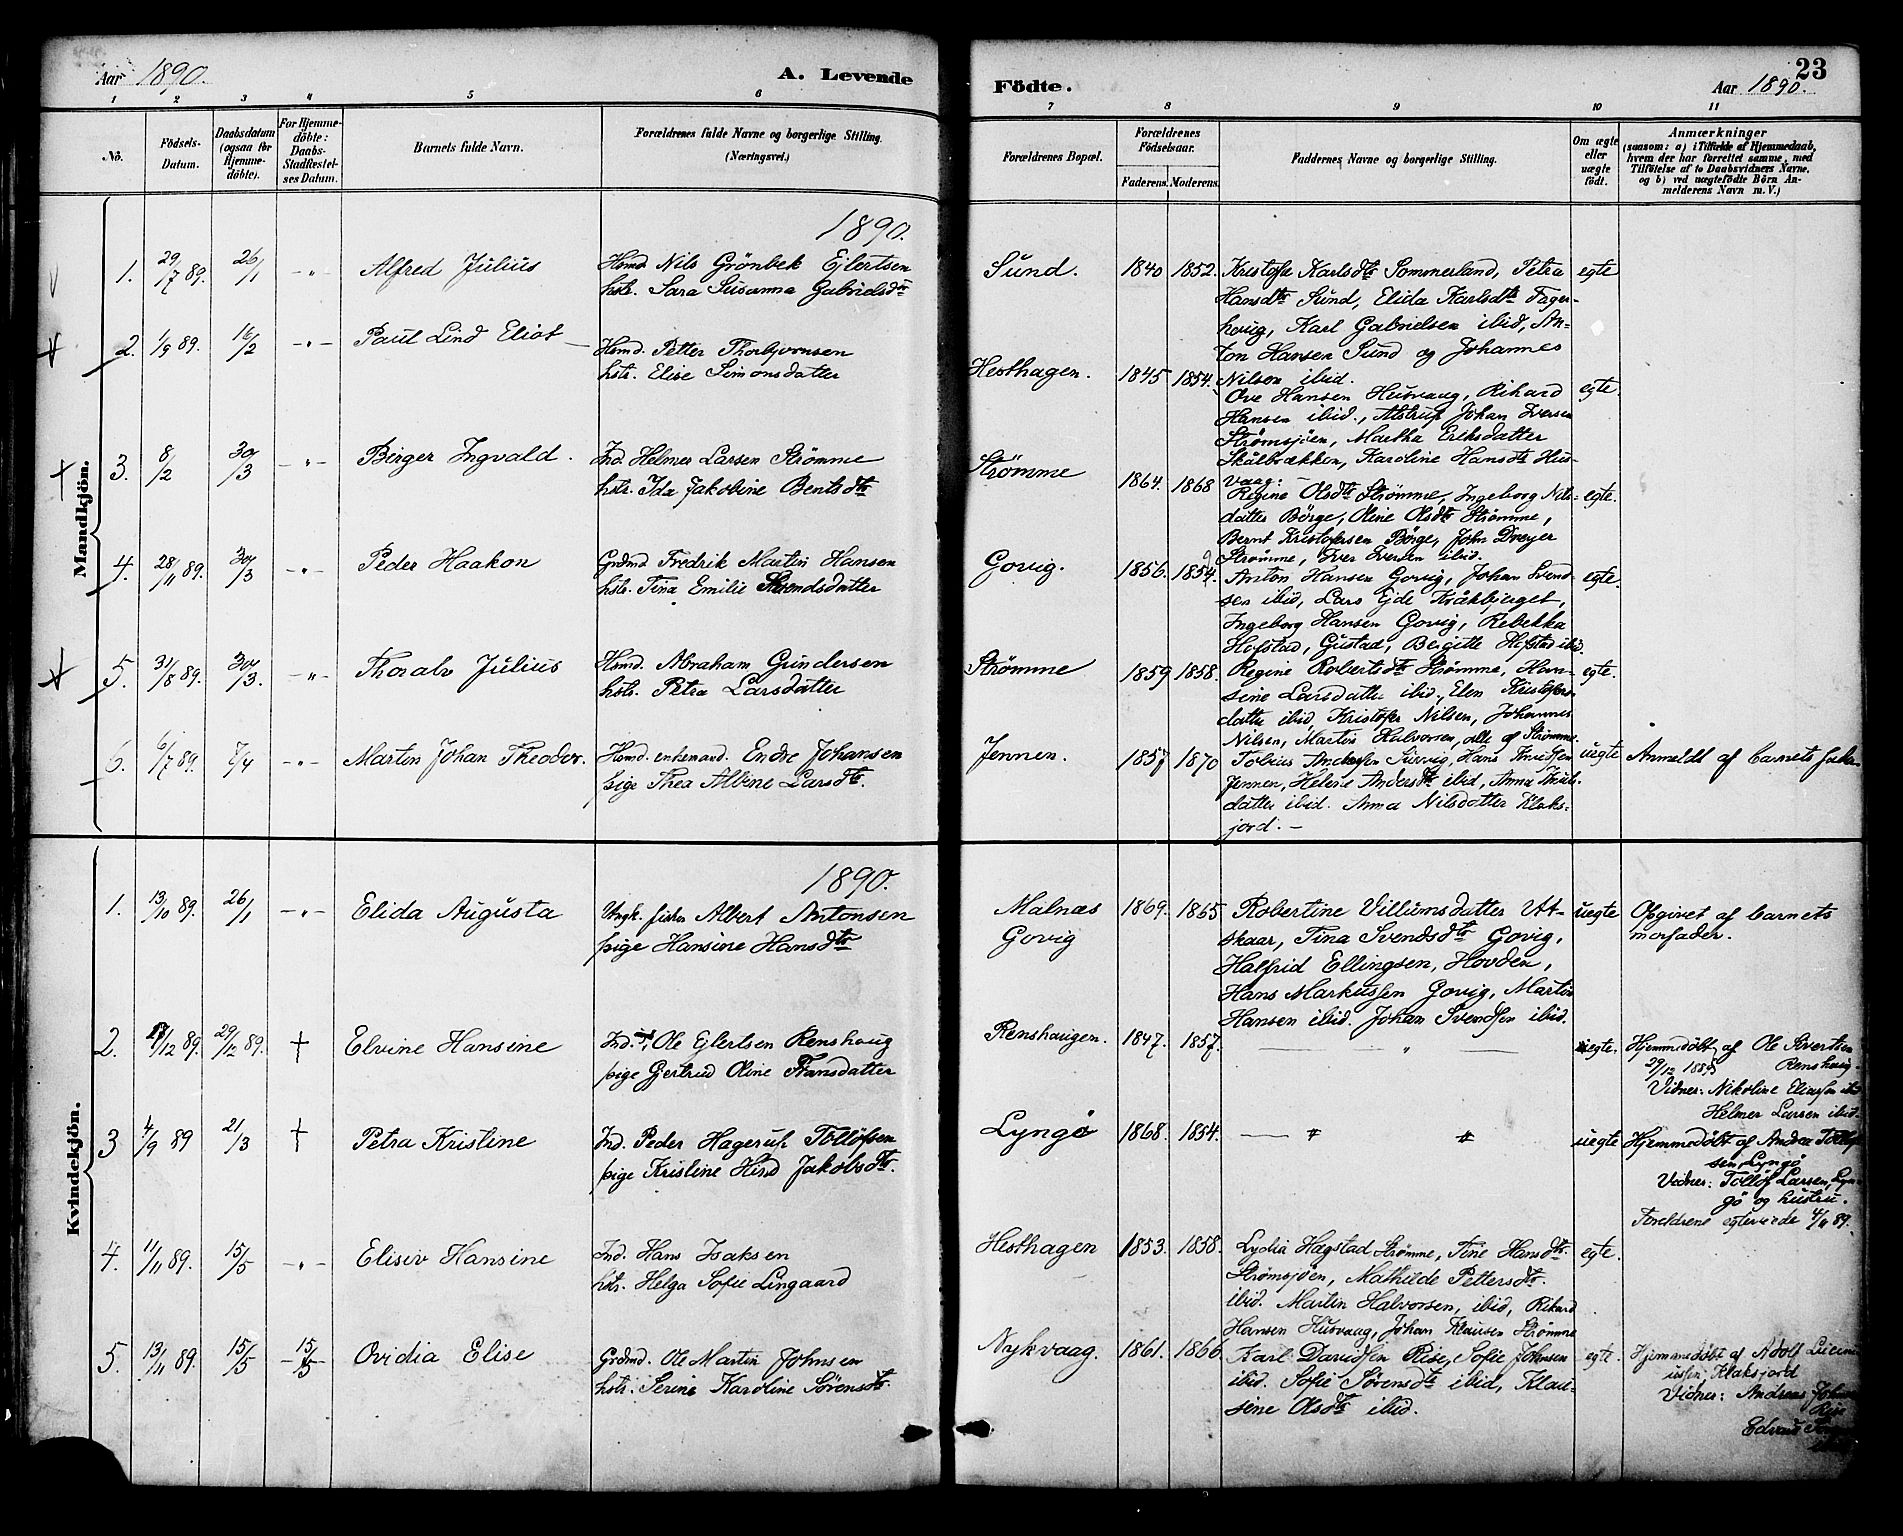 Aar 1890.
A. Levende
1 2 3 4 5 6
No.
Födsels-
Datum.
Daabsdatum
(ogsaa for
Hjemme-
döbte).
For Hjemme-
döbte:
Daabs-
Stadfæstel-
ses Datum.
Barnets fulde Navn.
Forældrenes fulde Navne og borgerlige Stilling.
(Næringsvei.)
Mandkjön.
1890.
1. 29/7 89. 26/1 -„- Alfred Julius
Hsmd Nils Grönbek Ejlertsen
hstr. Sara Susanna Gabrielsdtr
2. 1/9 89. 16/2 -„- Paul Lind Eliot
Hsmd. Petter Thorbjornsen
hstr. Elise Simonsdatter
3. 8/2 30/3 -„- Birger Ingvald.
Ind. Helmer Larsen Strömme
hstr. Ida Jakobine Bentsdtr
4. 28/11 89. 30/3 -„- Peder Haakon
Grdmd Fredrik Martin Hansen
hstr. Tina Emilie Svendsdatter
5. 31/8 89. 30/3. -„- Thoralv Julius
Hsmd. Abraham Gundersen
hstr. Petra Larsdatter
6. 6/7 89. 7/4 -„- Martin Johan Theodor.
Hsmd. enkemand. Endre Johansen
pige Thea Albine Larsdtr.
Kvindekjön.
1890.
1. 13/10 89. 26/1 -„- Elida Augusta
Ungk. fisker Albert Antonsen
pige Hansine Hansdtr
2. 17/12 89. 29/12 89. † Elvine Hansine
Ind. Ole Ejlertsen Renshaug
pige Gjertrud Oline Hansdatter
3 4/9 89 21/3 † Petra Kristine
Ind. Peder Hagerup Tollöfsen
pige Kristine Hind Jakobsdtr.
4. 11/11 89. 15/5 -„- Elisiv Hansine
Ind. Hans Isaksen
hstr. Helga Sofie Lingaard
5. 13/11 89. 15/5 15/5 Ovidia Elise
Grdmd. Ole Martin Johnsen
hstr. Serine Karoline Sörensdtr.
Födte.
Aar 1890.
23
7 8 9 10 11
Forældrenes Bopæl.
Forældrenes
Födselsaar.
Faderens. Moderens.
Faddernes Navne og borgerlige Stilling.
Om ægte
eller
uægte
födt.
Anmærkninger
(saasom: a) i Tilfælde af Hjemmedaab,
hvem der har forrettet samme, med
Tilföielse af to Daabsvidners Navne,
og b) ved uægtefödte Börn An-
melderens Navn m. V.)
Sund. 1840 1852. Kristofa Karlsdtr Sommerland, Petra egte
Hansdtr Sund, Elida Karlsdtr Fager-
haug, Karl Gabrielsen ibid, An-
ton Hansen Sund og Johannes
Nilsen ibid.
Hesthagen. 1845 1854. Ove Hansen Husvaag, Rikard egte.
Hansen ibid., Alstrup Johan Iversen
Strömsjöen, Martha Eriksdatter
Skålbrækken, Karoline Hansdtr Hus-
vaag: -
Strömme 1864. 1868 Regine Olsdtr Strömme, Ingeborg Nils- egte.
datter Börge, Oline Olsdtr Strömme,
Bernt Kristofersen Börge, John Dreyer
Strömme, Iver Iversen ibid.
Govig. 1856. 1854. Anton Hansen Govig, Johan Svend- egte.
sen ibid, Lars Ejde Kråkbjerget,
Ingeborg Hansen Govig, Rebekka
Hofstad, Gustad, Birgitte Hofstad ibid.
Strömme 1859 1858. Regine Robertsdtr Strömme, Han- egte.
sine Larsdatter ibid, Elen Kristofers
datter ibid, Kristofer Nilsen, Johannes
Nilsen, Martin Halvorsen, alle af Strömme.
Jennen. 1857 1870 Tobias Andersen Survig, Hans Knudsen uegte Anmeldt af barnets fader
Jennen, Helene Andersdtr ibid, Anna Knuds-
datter ibid. Anna Nilsdatter Klaks-
jord. -
Malnæs 1869. 1865 Robertine Villumsdatter Ut- uegte Opgivet af barnets
Govig skaar, Tina Svendsdtr Govig, morfader.
Halfrid Ellingsen, Hovden,
Hans Markussen Govig, Martin
Hansen ibid. Johan Svendsen ibid.
Renshaugen. 1847. 1857. „ uegte. Hjemmedöbt af Ole Sivertsen
29/12 1889 Renshaug-
Vidner: Nikoline Eliassen ibid
Helmer Larsen ibid-
Lyngö 1868. 1854. „ „ uegte Hjemmedöbt af Andrea Tollöf
sen Lyngö
Vidner: Tollöf Larsen, Lyn-
gö og hustru.
Foreldrene egteviede 4/11 89.
Hesthagen 1853. 1858. Lydia Hagstad Strömme, Tine Hansdtr. egte.
Strömsjöen, Mathilde Pettersdtr.
ibid. Martin Halvorsen, ibid, Rikard
Hansen Husvaag, Johan Klausen Strömme
Nykvaag. 1861. 1866 Karl Davidsen Rise, Sofie Johnsen egte. Hjemmedöbt af Adolf
ibid. Sofie Sörensdtr ibid, Klau- Klaksjord
sene Olsdtr ibid. Vidner: Andreas
Edvard